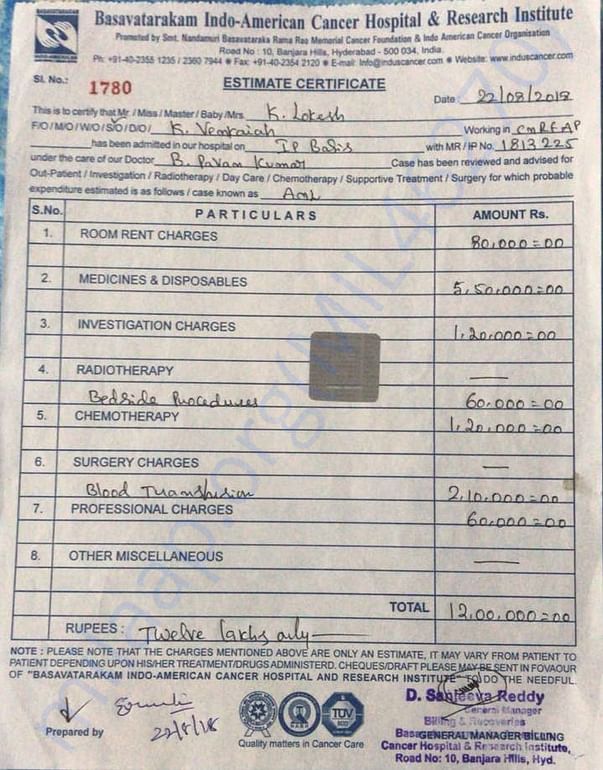 Basavatarakam Indo-American Cancer Hospital & Research Institute
Promoted by Smt. Nandamuri Basavataraka Rama Rao Memorial Cancer Foundation & Indo American Cancer Organisation
Road No : 10, Banjara Hills, Hyderabad - 500 034, India.
Ph: +91-40-2355 1235 / 2360 7944 • Fax: +91-40-2354 2120 • E-mail: Info@induscancer.com • Website: www.induscancer.com
Sl. No.: 1780
ESTIMATE CERTIFICATE
Date : 22/08/2018
This is to certify that Mr. / Miss / Master / Baby /Mrs. K. Lokesh
F/O / M/O / W/O / S/O / D/O / K. Venkaiah Working in CMREAP
has been admitted in our hospital on IP Basis with MR / IP No. 1813225
under the care of our Doctor B. Pavan Kumar Case has been reviewed and advised for
Out-Patient / Investigation / Radiotherapy / Day Care / Chemotherapy / Supportive Treatment / Surgery for which probable
expenditure estimated is as follows / case known as AML
S.No. PARTICULARS AMOUNT Rs.
1. ROOM RENT CHARGES 80,000=00
2. MEDICINES & DISPOSABLES 5,50,000=00
3. INVESTIGATION CHARGES 1,20,000=00
4. RADIOTHERAPY —
Bedside Procedures 60,000=00
5. CHEMOTHERAPY 1,20,000=00
6. SURGERY CHARGES —
Blood Transfusion 2,10,000=00
7. PROFESSIONAL CHARGES 60,000=00
8. OTHER MISCELLANEOUS —
TOTAL 12,00,000=00
RUPEES : Twelve lakhs only
NOTE : PLEASE NOTE THAT THE CHARGES MENTIONED ABOVE ARE ONLY AN ESTIMATE, IT MAY VARY FROM PATIENT TO
PATIENT DEPENDING UPON HIS/HER TREATMENT/DRUGS ADMINISTERD. CHEQUES/DRAFT PLEASE MAY BE SENT IN FOVAOUR
OF "BASAVATARAKAM INDO-AMERICAN CANCER HOSPITAL AND RESEARCH INSTITUTE" TO DO THE NEEDFUL.
D. Sanjeeva Reddy
General Manager
Billing & Recoveries
GENERAL MANAGER BILLING
Cancer Hospital & Research Institute,
Road No: 10, Banjara Hills, Hyd.
Prepared by
22/8/18
TUV
Quality matters in Cancer Care